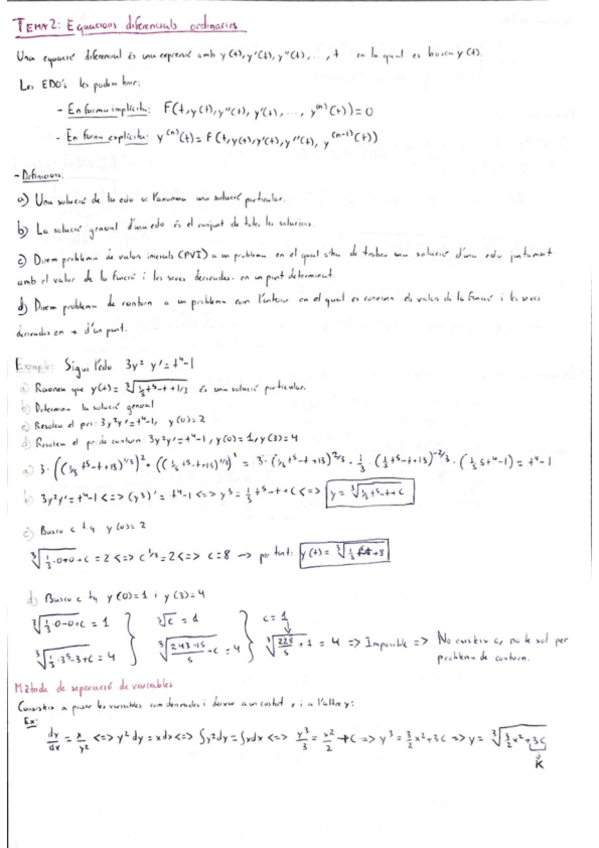 TEMA 2: Equacions diferencials ordinaries
Una equació diferencial és una expressió amb y(t), y'(t), y''(t), ..., t en la qual es busca y(t).
Les EDO's les podem tenir:
- En forma implícita: F(t, y(t), y''(t), y'(t), ..., y^(n)(t)) = 0
- En forma explícita: y^(n)(t) = F(t, y(t), y'(t), y''(t), y^(n-1)(t))
- Definicions:
a) Una solució de la edo s'anomena una solució particular.
b) La solució general d'una edo és el conjunt de totes les solucions.
c) Direm problema de valors inicials (PVI) a un problema en el qual s'ha de trobar una solució d'una edo juntament
amb el valor de la funció i les seves derivades en un punt determinat.
d) Direm problema de contorn a un problema com l'anterior en el qual es coneixen els valors de la funció i les seves
derivades en + d'un punt.
Exemple: Sigui l'edo 3y² y' = t⁴-1
a) Raoneu que y(t) = ∛(1/5 t⁵-t+1/3) és una solució particular.
b) Determineu la solució general
c) Resoleu el pvi: 3y²y' = t⁴-1, y(0)=2
d) Resoleu el pr. de contorn: 3y²y' = t⁴-1, y(0)=1, y(3)=4
b) 3y²y' = t⁴-1 <=> (y³)' = t⁴-1 <=> y³ = 1/5 t⁵-t+C <=> y = ∛(1/5 t⁵-t+C)
c) Busco c tq y(0)=2
∛(1/5·0-0+C) = 2 <=> C^(1/3) = 2 <=> C=8 -> per tant:
d) Busco c tq y(0)=1 i y(3)=4
∛(1/5·0-0+C = 1 } ∛C = 1 } C=1
∛(1/5·3⁵-3+C = 4 ∛((243-15)/5+C = 4 ∛(228/5+1 = 4 => Impossible => No existeix c, no té sol per
problema de contorn.
Mètode de separació de variables
Consisteix a passar les variables com derivades i deixar a un costat x i a l'altre y:
Ex:
dy/dx = x/y² <=> y²dy = xdx <=> ∫y²dy = ∫xdx <=> y³/3 = x²/2 + C => y³ = 3/2 x²+3C => y = ∛(3/2 x²+3C)
K